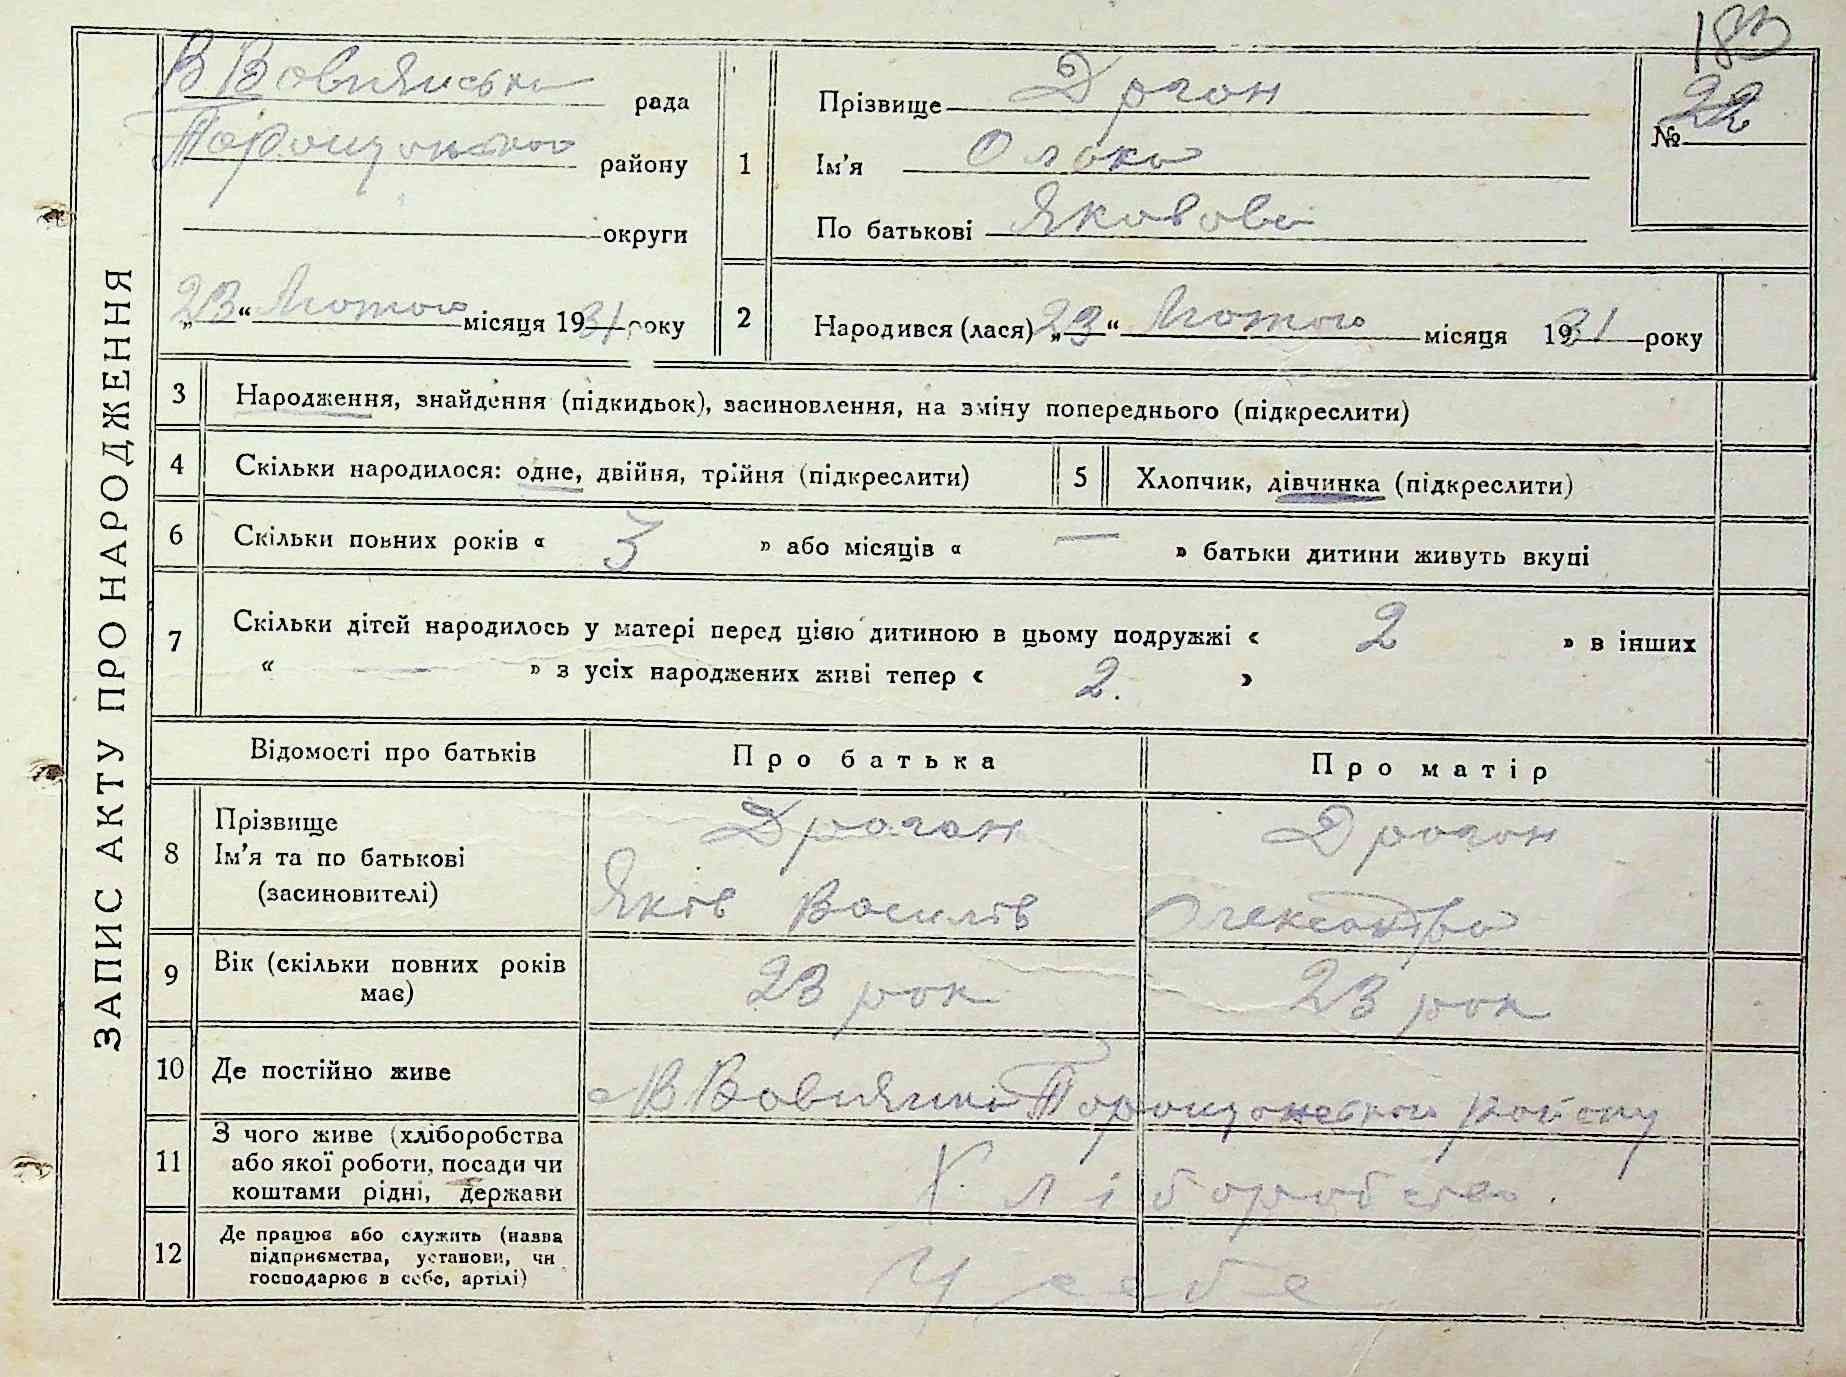 183
ЗАПИС АКТУ ПРО НАРОДЖЕННЯ
В Вовнянська рада
Таращанського району
округи
„23“ Лютого місяця 1931 року
1
Прізвище Драган
Ім’я Олока
По батькові Яковова
№ 22
2
Народився (лася) „23“ Лютого місяця 1931 року
3 Народження, знайдення (підкидьок), засиновлення, на зміну попереднього (підкреслити)
4 Скільки народилося: одне, двійня, трійня (підкреслити)
5 Хлопчик, дівчинка (підкреслити)
6 Скільки повних років « 3 » або місяців « — » батьки дитини живуть вкупі
7 Скільки дітей народилось у матері перед цією дитиною в цьому подружжі « 2 » в інших
« — » з усіх народжених живі тепер « 2. »
Відомості про батьків Про батька Про матір
8 Прізвище
Ім’я та по батькові
(засиновителі)
Драган
Яків Василів
Драган
Олександра
9 Вік (скільки повних років
має)
23 рок 23 рок
10 Де постійно живе
с В Вовнянка Таращанського району
11 З чого живе (хліборобства
або якої роботи, посади чи
коштами рідні, держави
Хліборобство.
12 Де працює або служить (назва
підприємства, установи, чи
господарює в себе, артілі)
У себе